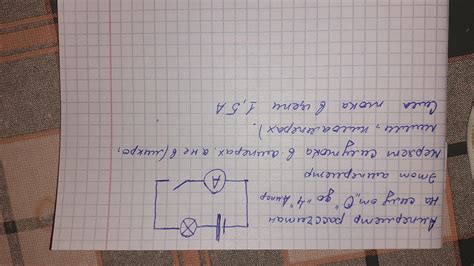 Амперметр рассчитан
На силу от "0" до "4" Ампер
Этот амперметр
Мерзет силу тока в амперах, а не в (микро,
милли, кило амперах).
Сила тока в цепи 1,5 А
А